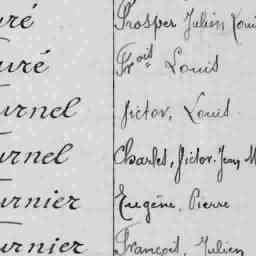 uré Prosper Julien Loui
uré Fr.ois Louis
urnel Victor, Louis.
urnel Charles, Victor, Jean M
urnier Eugène, Pierre
urnier François, Julien